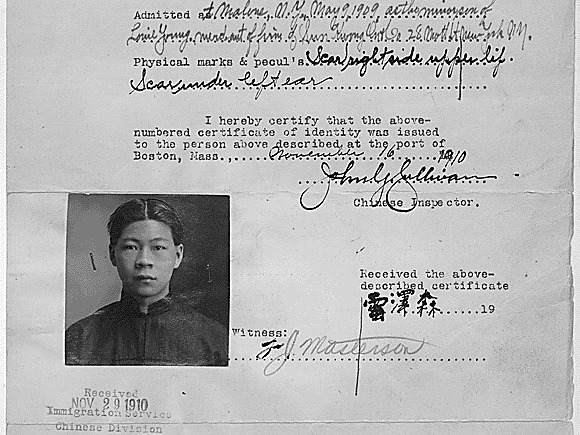 Admitted at Malone, N.Y., May 9, 1909, as the minor son of
Louie Young, merchant of firm of Kwong & Co 26 Mott St. New York N.Y.
Physical marks & pecul's. Scar right side upper lip.
Scar under left ear
I hereby certify that the above-
numbered certificate of identity was issued
to the person above described at the port of
Boston, Mass.,....November 16......1910
John G. Sullivan
Chinese Inspector.
Received the above-
described certificate
雷澤森......19
Witness:
J. Masterson
Received
NOV 29 1910
Immigration Service
Chinese Division